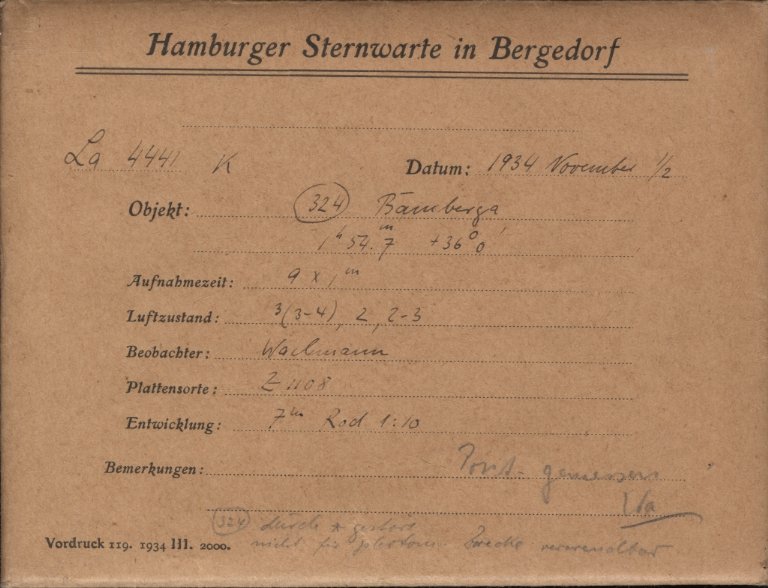 Hamburger Sternwarte in Bergedorf
La 4441 K Datum: 1934 November 1/2
Objekt: (324) Bamberga
1h 54.m7 +36°0
Aufnahmezeit: 9 x 1m
Luftzustand: 3(3-4), 2, 2-3
Beobachter: Wachmann
Plattensorte: Z 1108
Entwicklung: 7m Rod 1:10
Bemerkungen: Posit. gemessen
Wa
(324) durch * gestört
Vordruck 119. 1934 III. 2000. nicht für photom. Zwecke verwendbar